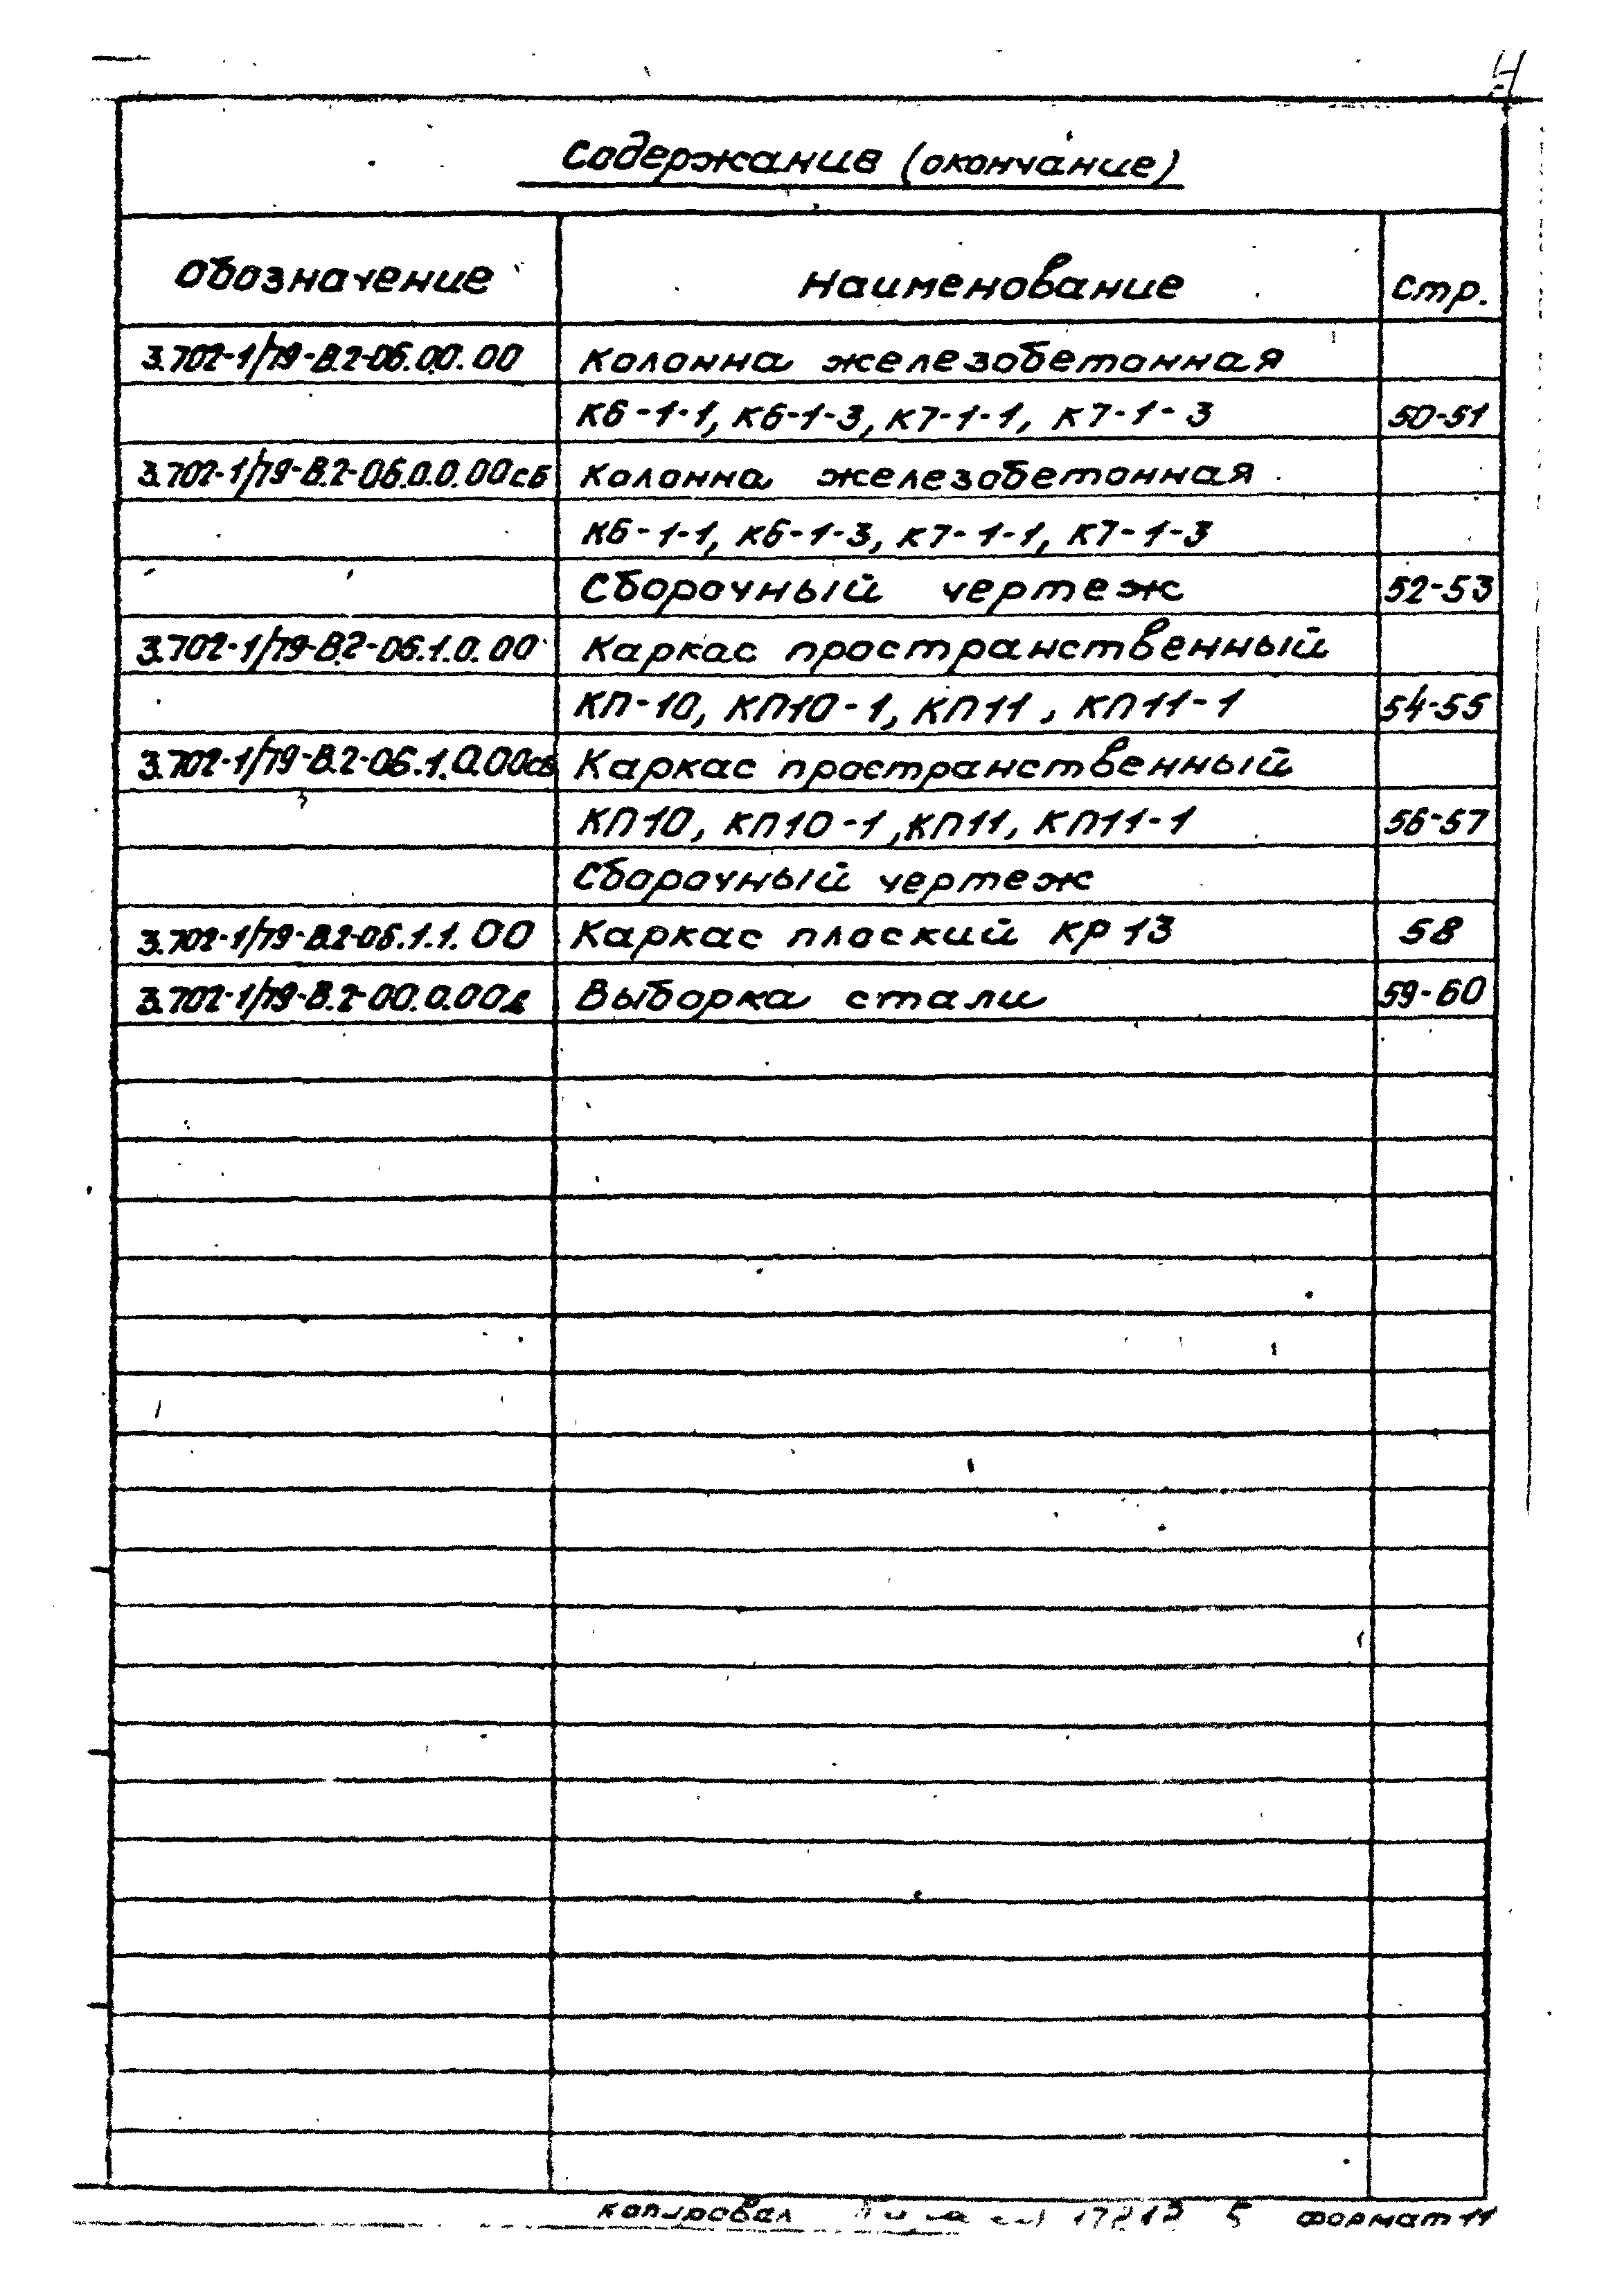 4
Содержание (окончание)
Обозначение Наименование Стр.
3.702-1/79-В.2-06.0.0.00 Колонна железобетонная
К6-1-1, К6-1-3, К7-1-1, К7-1-3 50-51
3.702-1/79-В.2-06.0.0.00СБ Колонна железобетонная
К6-1-1, К6-1-3, К7-1-1, К7-1-3
Сборочный чертеж 52-53
3.702-1/79-В.2-06.1.0.00 Каркас пространственный
КП-10, КП10-1, КП11, КП11-1 54-55
3.702-1/79-В.2-06.1.0.00СБ Каркас пространственный
КП10, КП10-1, КП11, КП11-1 56-57
Сборочный чертеж
3.702-1/79-В.2-06.1.1.00 Каркас плоский КР13 58
3.702-1/79-В.2-00.0.00 Выборка стали 59-60
Копировал 5 Формат 11